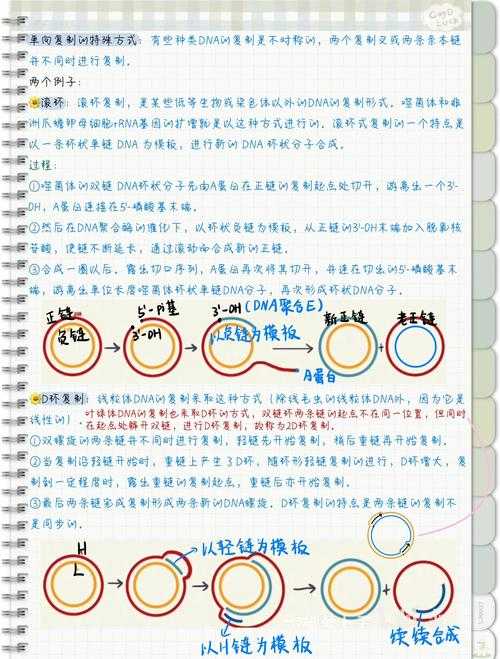 GOOD LUCK
单向复制的特殊方式：有些种类DNA的复制是不对称的，两个复制叉或两条亲本链
并不同时进行复制。
两个例子：
滚环：滚环复制，是某些低等生物或染色体以外的DNA的复制形式。噬菌体和非
洲爪蟾卵母细胞rRNA基因的扩增就是以这种方式进行的。滚环式复制的一个特点是
以一条环状单链 DNA 为模板，进行新的 DNA 环状分子合成。
过程：
①噬菌体的双链 DNA环状分子先由A蛋白在正链的复制起点处切开，游离出一个3'-
OH，A蛋白连接在5'-磷酸基末端。
②然后在DNA聚合酶的催化下，以环状负链为模板，从正链的3'-OH末端加入脱氧核
苷酸，使链不断延长，通过滚动而合成新的正链。
③合成一圈以后，露出切口序列，A蛋白再次将其切开，并连在切出的5'-磷酸基末
端，游离出单位长度噬菌体环状单链DNA分子，再次形成环状DNA分子。
正链 5'-Pi基 3'-OH (DNA聚合E) 新正链 老正链
负链 3'-OH 以负链为模板
A蛋白
D环复制：线粒体DNA的复制采取这种方式（除线毛虫的线粒体DNA外，因为它是
线性的）.叶绿体DNA的复制也采取D环的方式，双链环两条链的起点不在同一位置，但同时
在起点处解开双链，进行D环复制，故称为2D环复制。
①双螺旋的两条链并不同时进行复制，轻链先开始复制，稍后重链再开始复制。
②当复制沿轻链开始时，重链上产生了D环，随环形轻链复制的进行，D环增大，复
制到一定程度时，露出重链的复制起点，重链后亦开始复制。
③最后两条链完成复制形成两条新的DNA螺旋。D环复制的特点是两条链的复制不
是同步的。
H
L
以轻链为模板
以H链为模板
续续合成